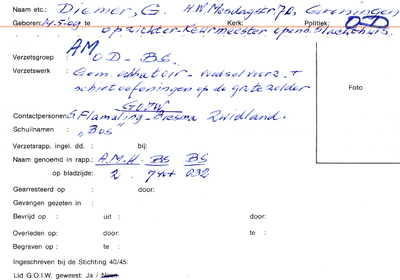 Naam etc.: Diemer, G. H.W. Mesdagstr. 72, Groningen
Geboren: 14.5.09 te Kerk: Politiek: O-D
opzichter-Keurmeester openb. Slachthuis.
AM
Verzetsgroep : O.D. - B.S.
Verzetswerk : Gem. abbatoir - voedselvoorz. +
schietoefeningen op de grote zolder
GOIW
Contactpersonen: S. Flameling - Zuidland.
Schuilnamen : "Bos"
Verzetsrapp. ingel. dd. : bij:
Naam genoemd in rapp.: A.M.H. BS BS
op bladzijde: 2 032
Foto
Gearresteerd op : door:
Gevangen gezeten in :
Bevrijd op : uit : door:
Overleden op: door: te :
Begraven op : te :
Ingeschreven bij de Stichting 40/45:
Lid G.O.I.W. geweest: Ja / Neen